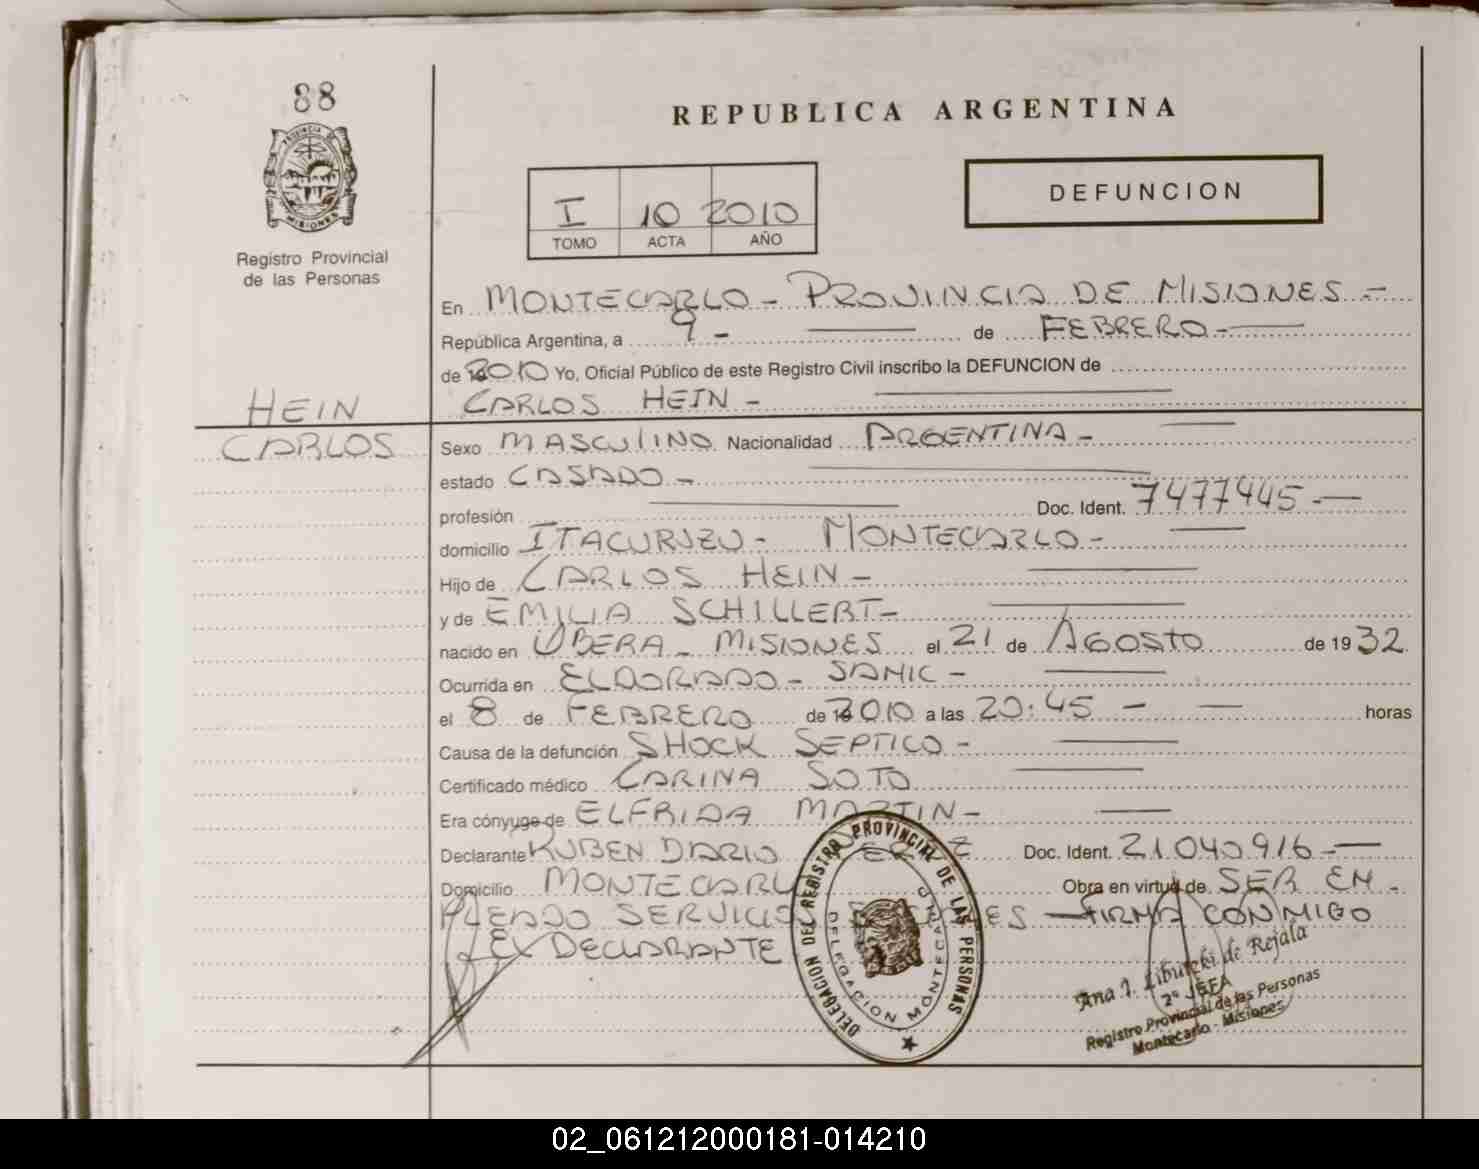 88
PROVINCIA DE
MISIONES
Registro Provincial
de las Personas
REPUBLICA ARGENTINA
I 10 2010
TOMO ACTA AÑO
DEFUNCION
En MONTECARLO - PROVINCIA DE MISIONES -
República Argentina, a 9 - de FEBRERO -
de 2010 Yo, Oficial Público de este Registro Civil inscribo la DEFUNCION de
HEIN
CARLOS
CARLOS HEIN -
Sexo MASCULINO Nacionalidad ARGENTINA -
estado CASADO -
profesión Doc. Ident. 7477445 -
domicilio ITACURUZU - MONTECARLO -
Hijo de CARLOS HEIN -
y de EMILIA SCHILLERT -
nacido en OBERA - MISIONES el 21 de AGOSTO de 1932
Ocurrida en ELDORADO - SAMIC -
el 8 de FEBRERO de 2010 a las 20:45 - horas
Causa de la defunción SHOCK SEPTICO -
Certificado médico CARINA SOTO
Era cónyuge de ELFRIDA MARTIN -
Declarante RUBEN DARIO Doc. Ident. 21040916 -
Domicilio MONTECARLO Obra en virtud de SER EM -
PLEADO SERVICIO - FIRMA CONMIGO
EL DECLARANTE
DELEGACION DEL REGISTRO PROVINCIAL DE LAS PERSONAS
DELEGACION MONTECARLO
Ana I. de Rejala
2º JEFA
Registro Provincial de las Personas
Montecarlo - Misiones
02_061212000181-014210